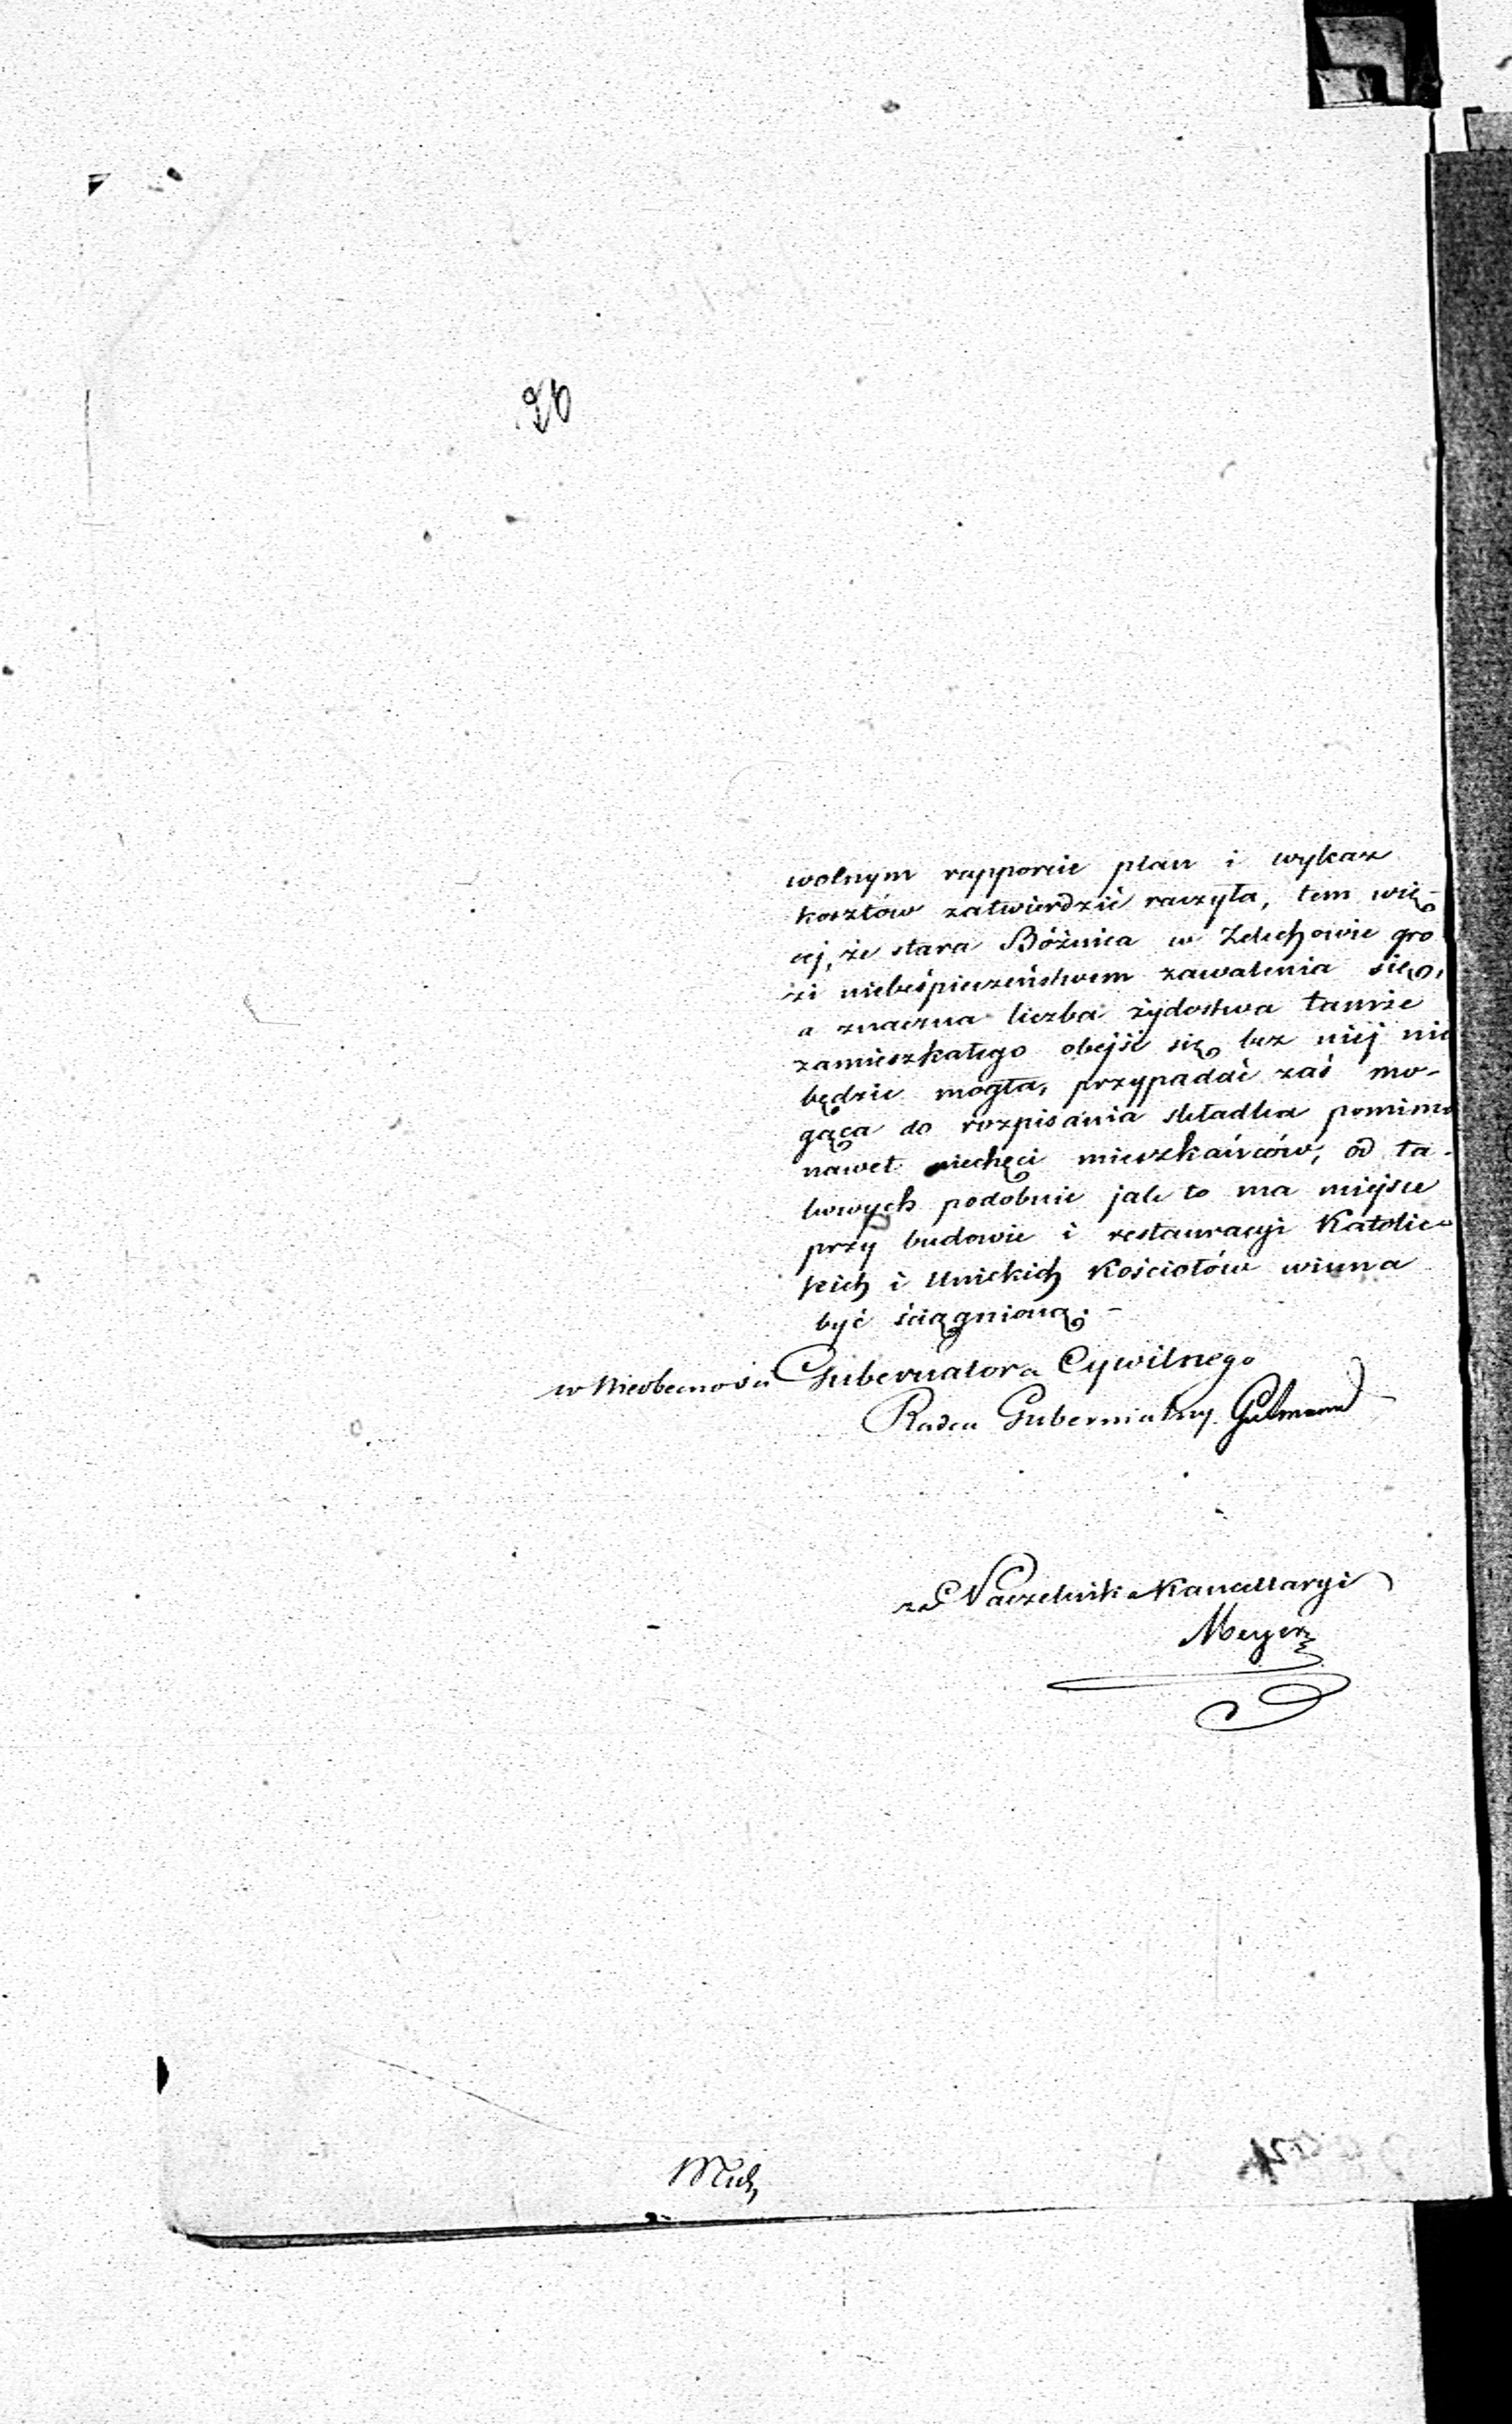 26
wolnym rapporcie plan i wykaz
kosztów zatwierdzić raczyła, tem wię-
cej, że stara Bóżnica w Żelechowie gro
zi niebeśpieczeństwem zawalenia się,
a znaczna liczba żydostwa tamże
zamieszkałego obejść się bez niej nie
będzie mogła, przypadać zaś mo-
gąca do rozpisania składka pomimo
nawet niechęci mieszkańców, od ta-
kowych podobnie jak to ma miejsce
przy budowie i restauracyi Katolic-
kich i Unickich Kościołów winna
być ściągnioną. -
w Nieobecności Gubernatora Cywilnego
Radca Gubernialny
za Naczelnika Kancellaryi
Meyer